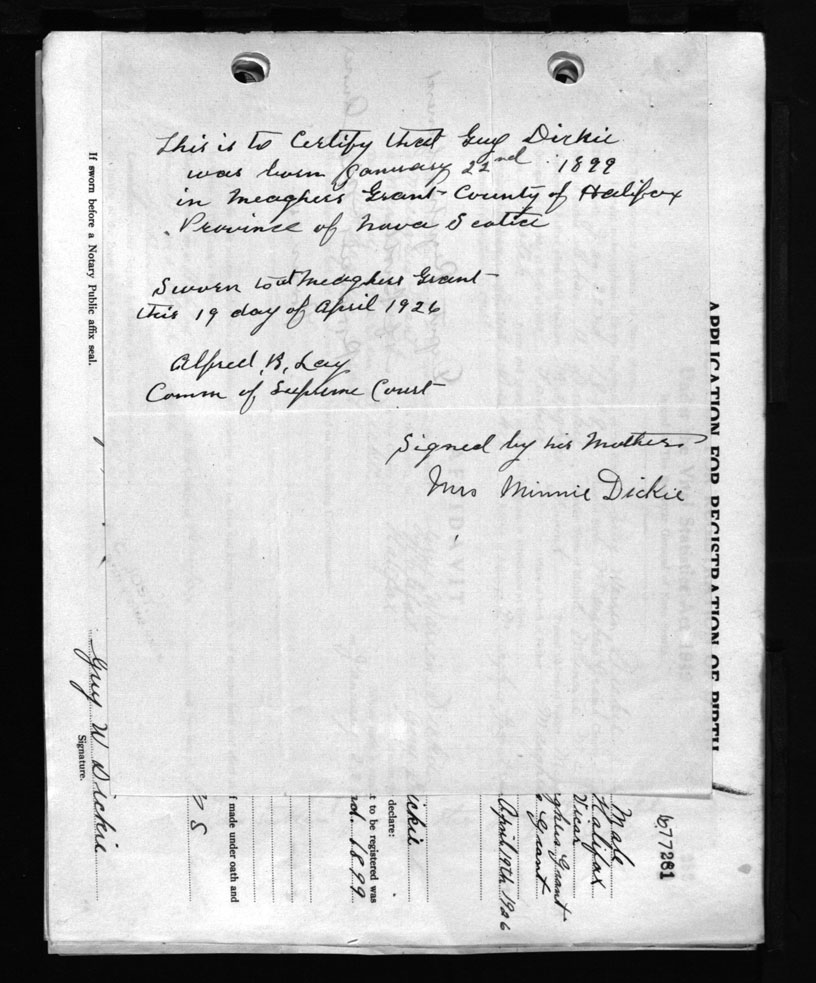 This is to Certify that Guy Dickie
was born January 22nd 1899
in Meaghers Grant County of Halifax
Province of Nova Scotia
Sworn to at Meaghers Grant
this 19 day of April 1926
Alfred B. Lay
Comm of Supreme Court
Signed by his Mother
Mrs Minnie Dickie
If sworn before a Notary Public affix seal.
Guy W Dickie
Signature.
f made under oath and
t to be registered was
rd. 1899
declare:
ickie
April 19th 1926
s Grant
ghers Grant
Halifax
Male
677281
APPLICATION FOR REGISTRATION OF BIRTH